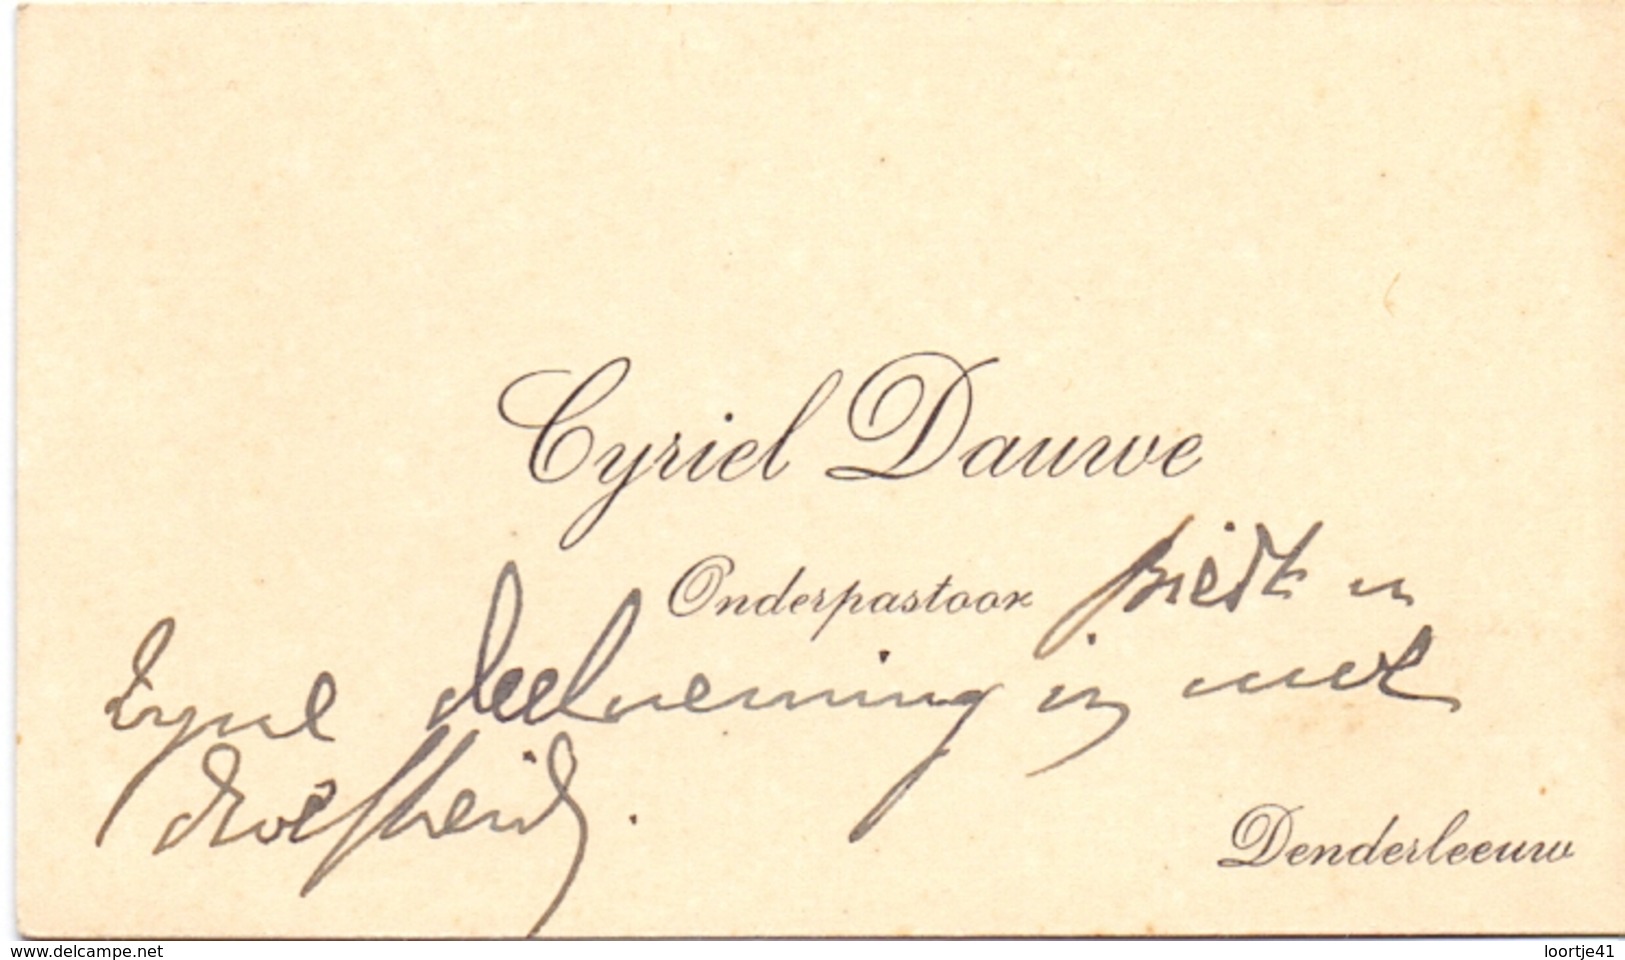 Cyriel Dauwe
Onderpastoor biedt u
zyne deelneming in uwe
droefheid.
Denderleeuw
www.delcampe.net
loortje41